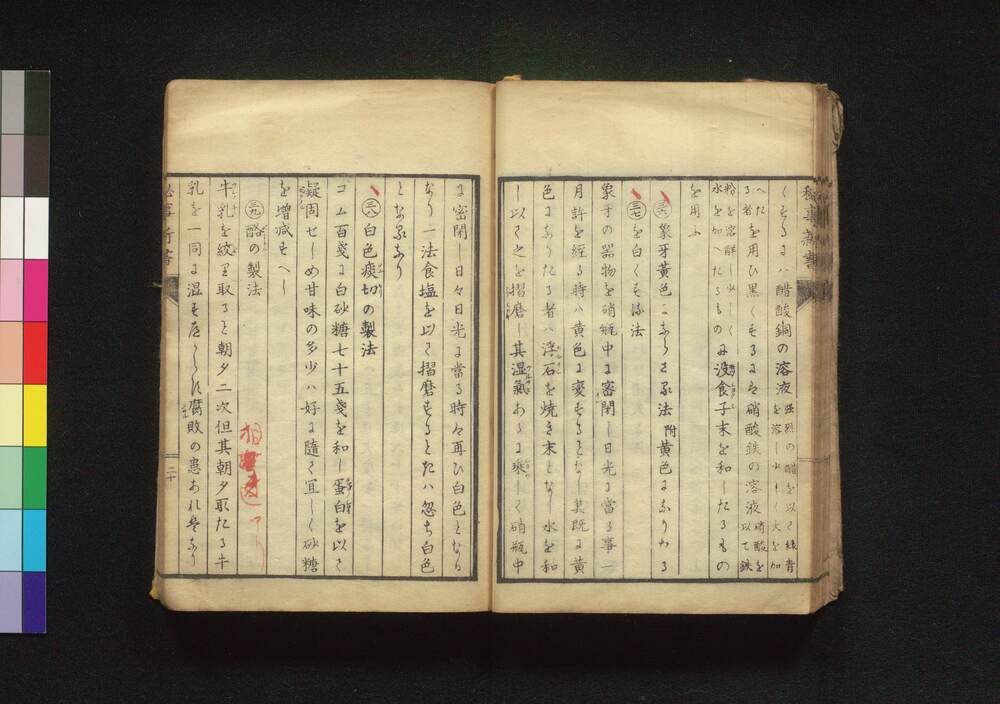 くするには醋酸銅の溶液 強烈の醋を以て緑青を溶し少しく火を加
へたを用ひ黒くするには硝酸鉄の溶液 硝酸を以て鉄
粉を溶解し少しく水を加へたるもの に没食子末を和したるもの
を用ふ
三六 象牙黄色にならざる法 附 黄色になりたる
三七 を白くする法
象牙の器物を硝瓶中に密閉し日光に當る事一
月許を經る時ハ黄色に変することなし其既に黄
色になりたる者ハ浮石を焼き末となし水を和
し以て之を摺磨し其湿氣あるに乗して硝瓶中
に密閉し日々日光に當る時ハ再ひ白色となる
なり一法食塩を以て摺磨するときハ忽ち白色
となるなり
三八 白色痰切の製法
コム百戔に白砂糖七十五戔を和し蛋白を以て
凝固せしめ甘味の多少ハ好に隨て宜しく砂糖
を増減すへし
三九 酪の製法
相違アリ
牛乳を絞り取ること朝夕二次但其朝夕取たる牛
乳を一同に温す腐敗の患あれはなり
二十